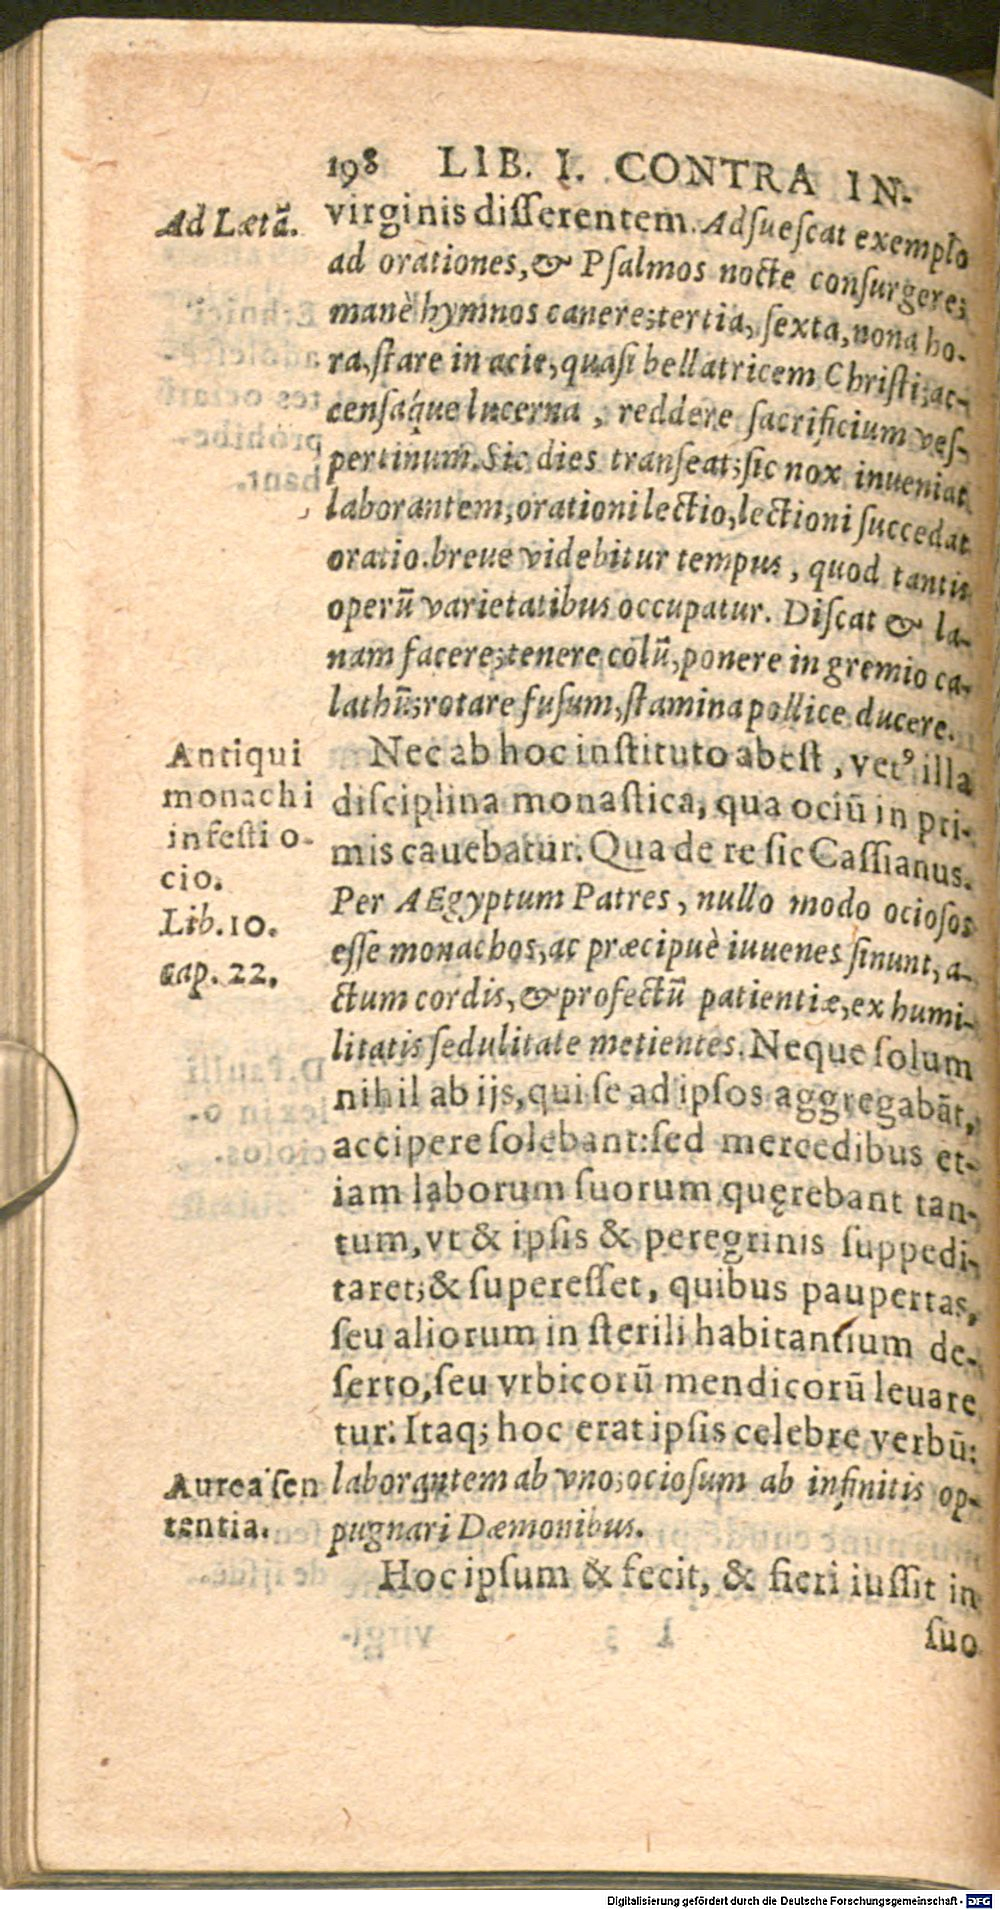 198 LIB. I. CONTRA IN-
Ad Lætã.
virginis differentem. Adſueſcat exemplo
ad orationes, & Pſalmos nocte conſurgere;
manè hymnos canere; tertia, ſexta, nona ho-
ra, ſtare in acie, quaſi bellatricem Chriſti; ac-
cenſáque lucerna, reddere ſacrificium veſ-
pertinum. Sic dies tranſeat; ſic nox inueniat
laborantem, orationi lectio, lectioni ſuccedat
oratio. breue videbitur tempus, quod tantis
operū varietatibus occupatur. Diſcat & la-
nam facere; tenere colū, ponere in gremio ca-
lathū; rotare fuſum, ſtamina pollice ducere.
Antiqui
monachi
infeſti o-
cio.
Lib. 10.
cap. 22.
Nec ab hoc inſtituto abeſt, vetꝰ illa
diſciplina monaſtica, qua ociū in pri-
mis cauebatur. Qua de re ſic Caſſianus.
Per AEgyptum Patres, nullo modo ocioſos
eſſe monachos, ac præcipuè iuuenes ſinunt, a-
ctum cordis, & profectū patientiæ, ex humi-
litatis ſedulitate metientes. Neque ſolum
nihil ab ijs, qui ſe ad ipſos aggregabāt,
accipere ſolebant: ſed mercedibus et-
iam laborum ſuorum quęrebant tan-
tum, vt & ipſis & peregrinis ſuppedi-
taret; & ſupereſſet, quibus paupertas,
ſeu aliorum in ſterili habitantium de-
ſerto, ſeu vrbicorū mendicorū leuare
tur. Itaq; hoc erat ipſis celebre verbū:
Aurea ſen
tentia.
laborantem ab vno; ocioſum ab infinitis op-
pugnari Dæmonibus.
Hoc ipſum & fecit, & fieri iuſſit in
ſuo
Digitalisierung gefördert durch die Deutsche Forschungsgemeinschaft - DFG